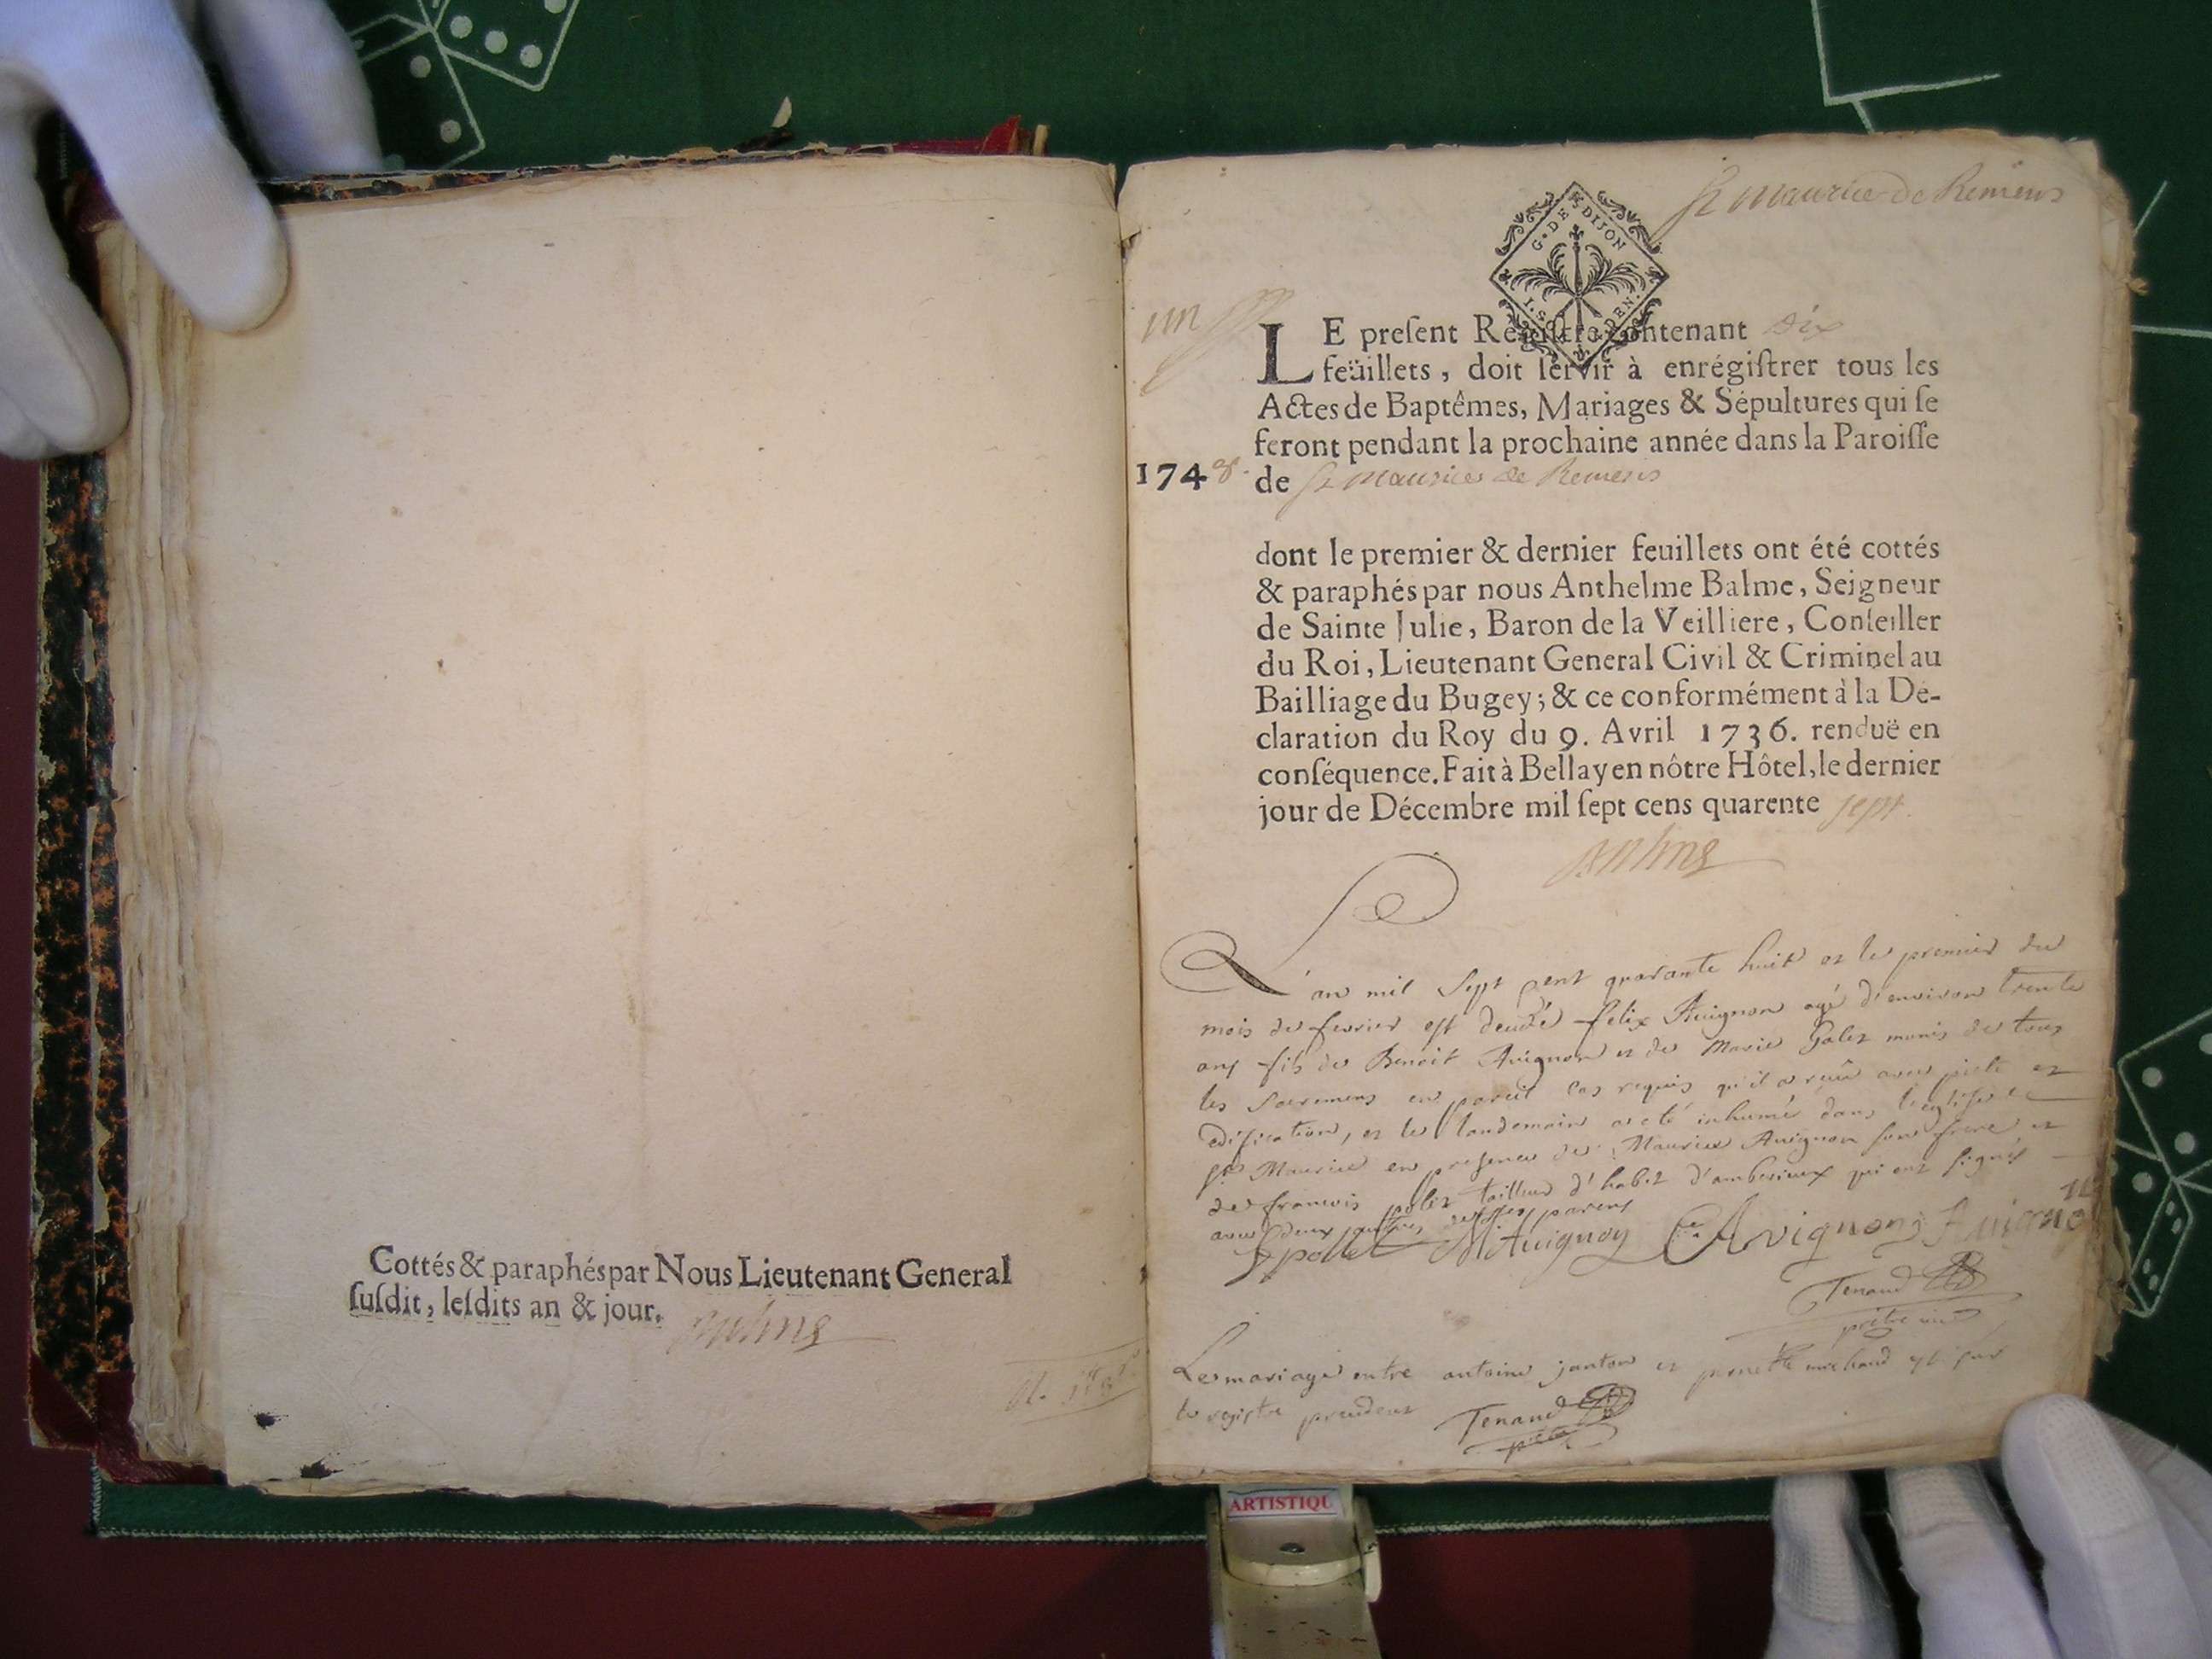 Cottés & paraphés par Nous Lieutenant General
ſuſdit, leſdits an & jour.
St Maurice de Remens
G. DE DIJON
un
LE preſent Régiſtre contenant dix
feüillets, doit ſervir à enrégiſtrer tous les
Actes de Baptêmes, Mariages & Sépultures qui ſe
feront pendant la prochaine année dans la Paroiſſe
1748. de St Maurice de Remens
dont le premier & dernier feuillets ont été cottés
& paraphés par nous Anthelme Balme, Seigneur
de Sainte Julie, Baron de la Veilliere, Conſeiller
du Roi, Lieutenant General Civil & Criminel au
Bailliage du Bugey; & ce conformément à la De-
claration du Roy du 9. Avril 1736. renduë en
conſéquence. Fait à Bellay en nôtre Hôtel, le dernier
jour de Décembre mil ſept cens quarente sept.
L'an mil sept cent quarante huit et le premier du
mois de fevrier est decedé felix Avignon agé d'environ trente
ans fils de Benoit Avignon et de Marie Galet munis de tous
les sacremens en pareil cas requis qu'il a reçû avec pieté et
edification, et le landemain a eté inhumé dans l'eglise
st Maurice en presence de Maurice Avignon son frere et
de francois polet tailleur d'habit d'amberieux qui ont signés
avec deux autres parens
F pollet M Avignon Avignon
Tenand
prêtre
Le mariage entre antoine janton et michaud est sur
le registre precedent Tenand
ARTISTIQU